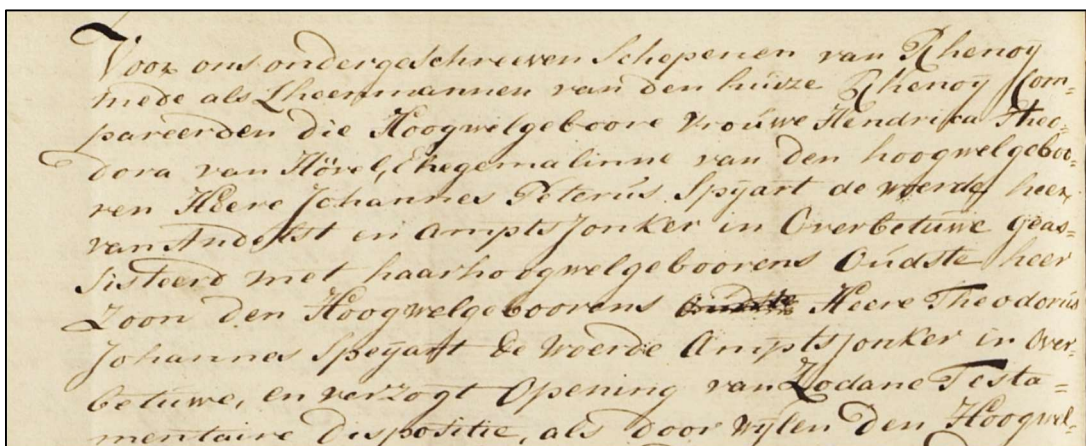 Voor ons ondergeschreeven Schepenen van Rhenoÿ
mede als Lheenmannen van den huize Rhenoÿ Com=
pareerden die Hoogwelgeboore Vrouwe Hendrica Theo=
dora van Hövel, Ehegemalinne van den hoogwelgeboo=
ren Heere Johannes Peterus Spÿart de Woerde heer
van Andelst en Amptsjonker in Overbetuwe geas=
sisteerd met haarhoogwelgeboorens Oudste heer
Zoon den Hoogwelgeboorens Heere Theodorus
Johannes Speÿart de Woerde Amptsjonker in Over=
betuwe, en verzogt Opening van Zodane Testa=
mentaire dispositie, als door wÿlen den Hoogwel=